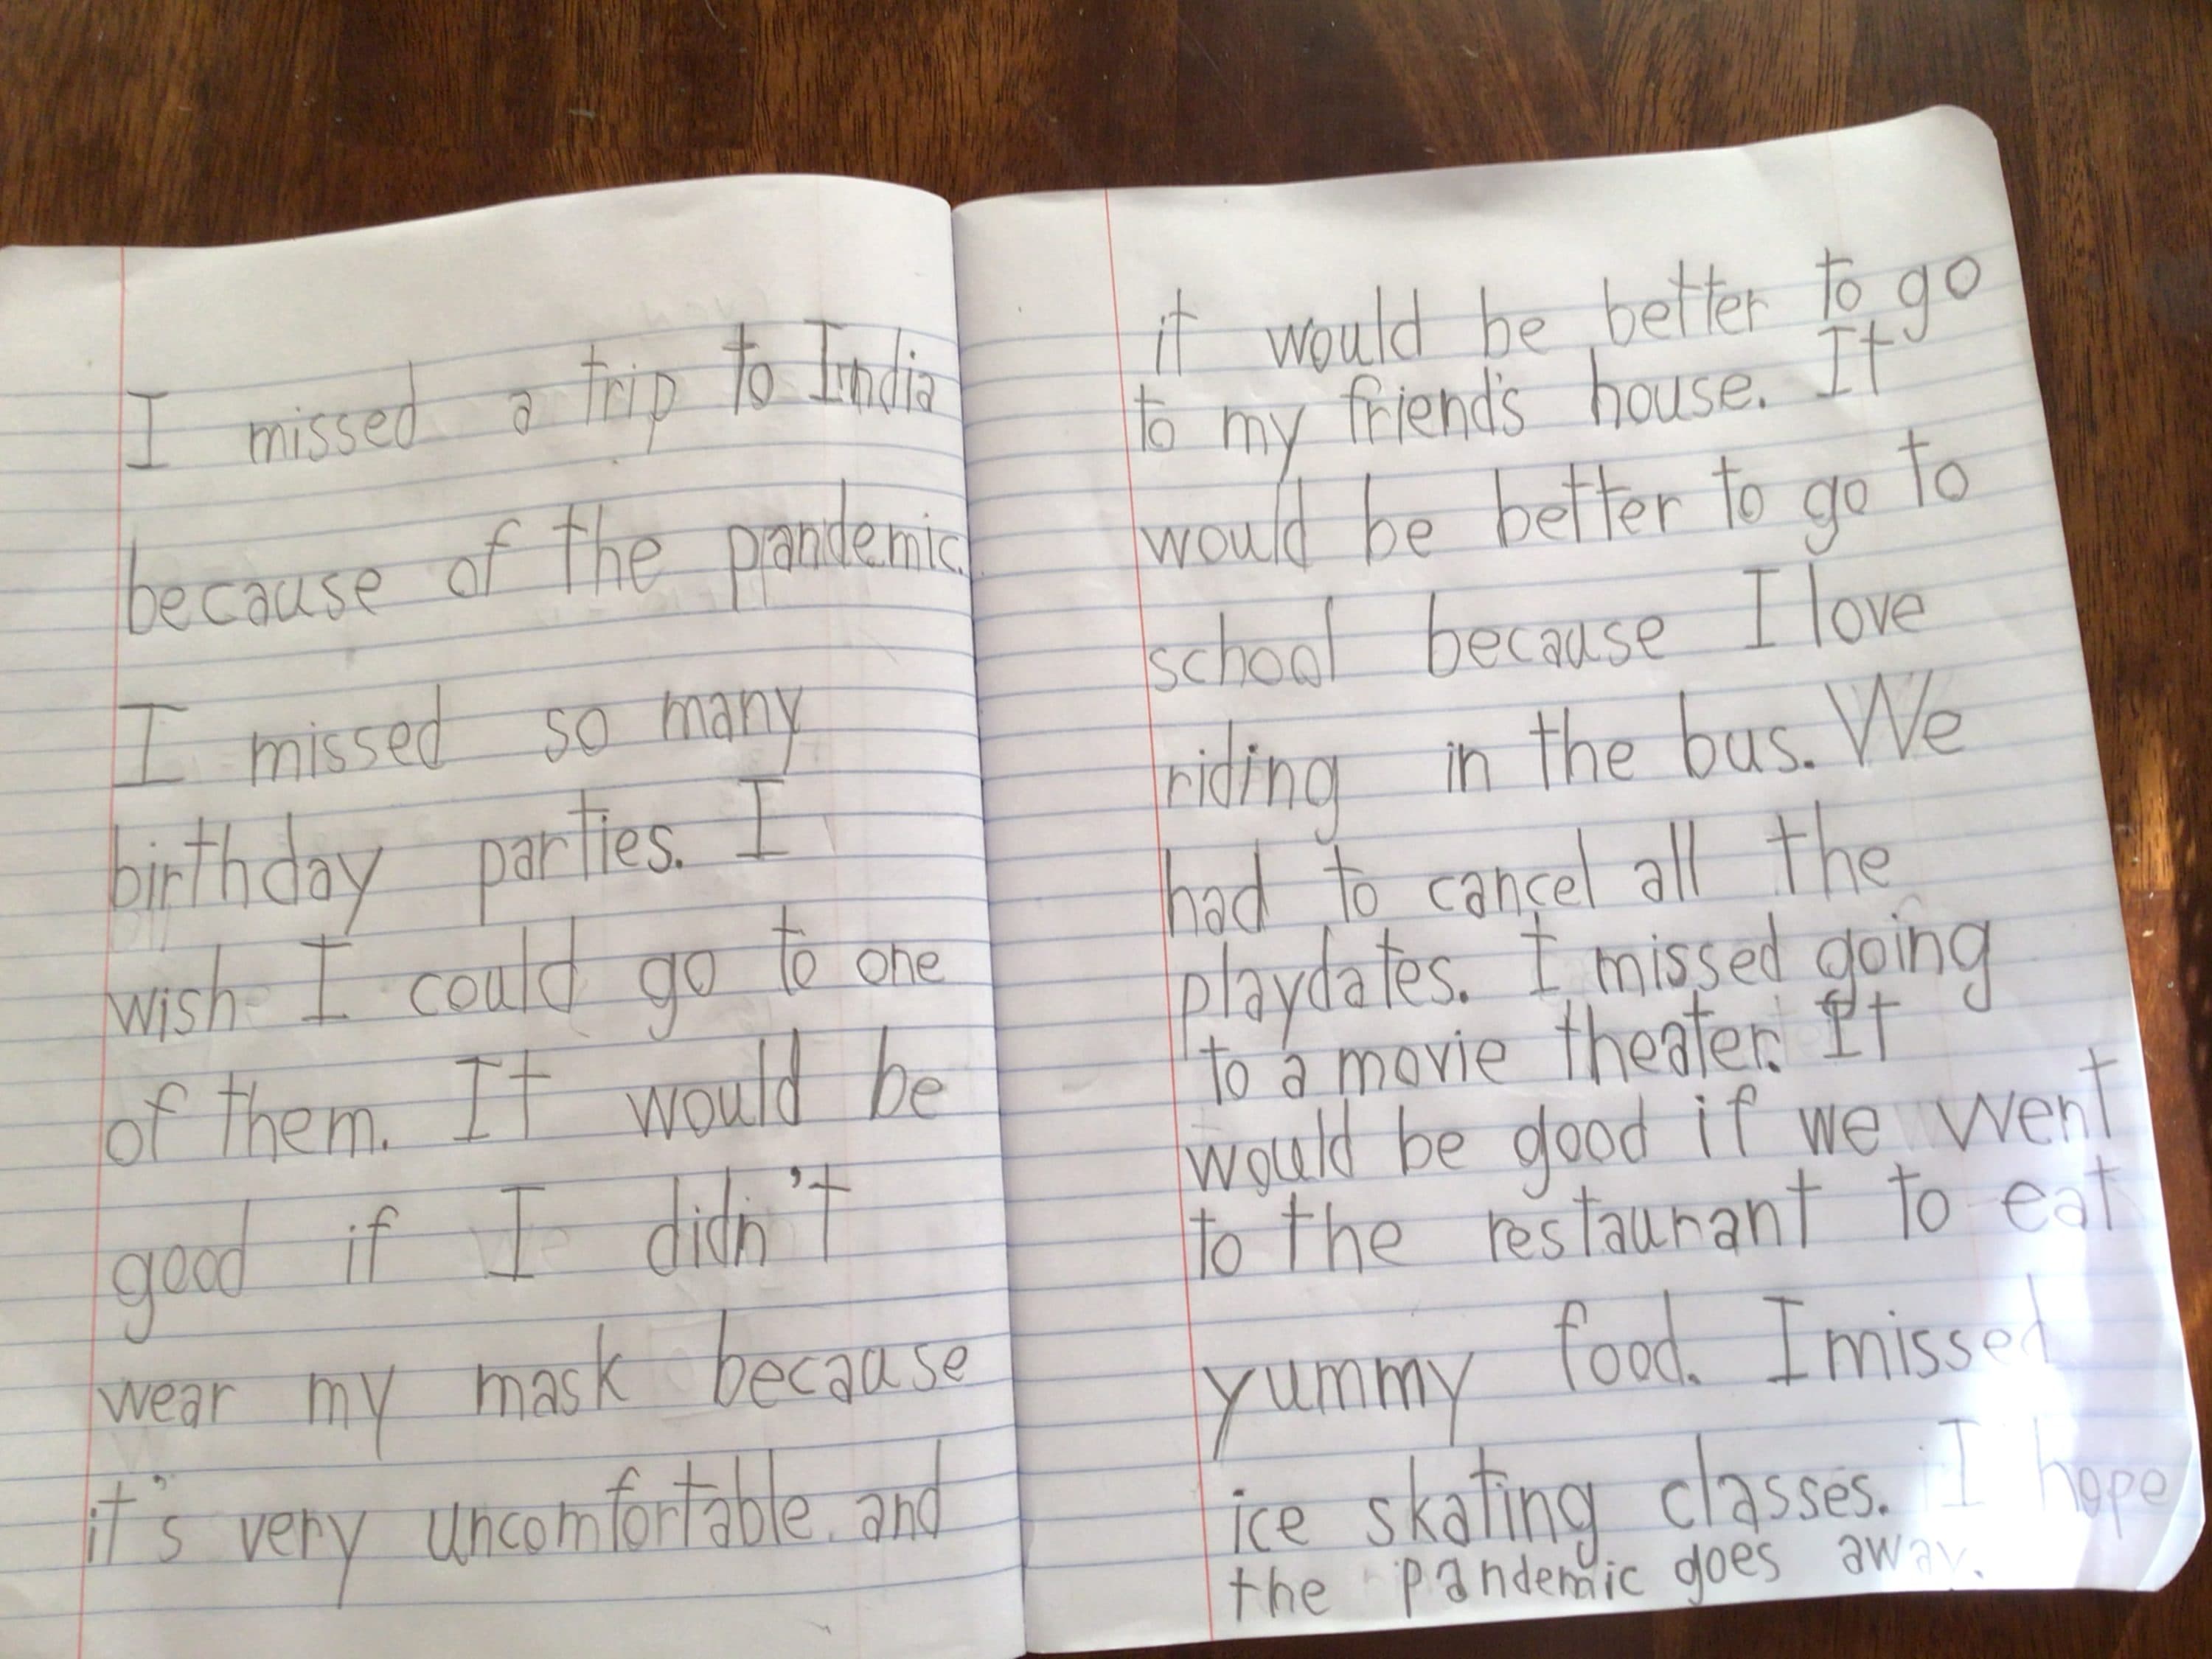 I missed a trip to India
because of the pandemic.
I missed so many
birthday parties. I
wish I could go to one
of them. It would be
good if I didn't
wear my mask because
it's very uncomfortable and
it would be better to go
to my friend's house. It
would be better to go to
school because I love
riding in the bus. We
had to cancel all the
playdates. I missed going
to a movie theater. It
would be good if we went
to the restaurant to eat
yummy food. I missed
ice skating classes. I hope
the pandemic goes away.